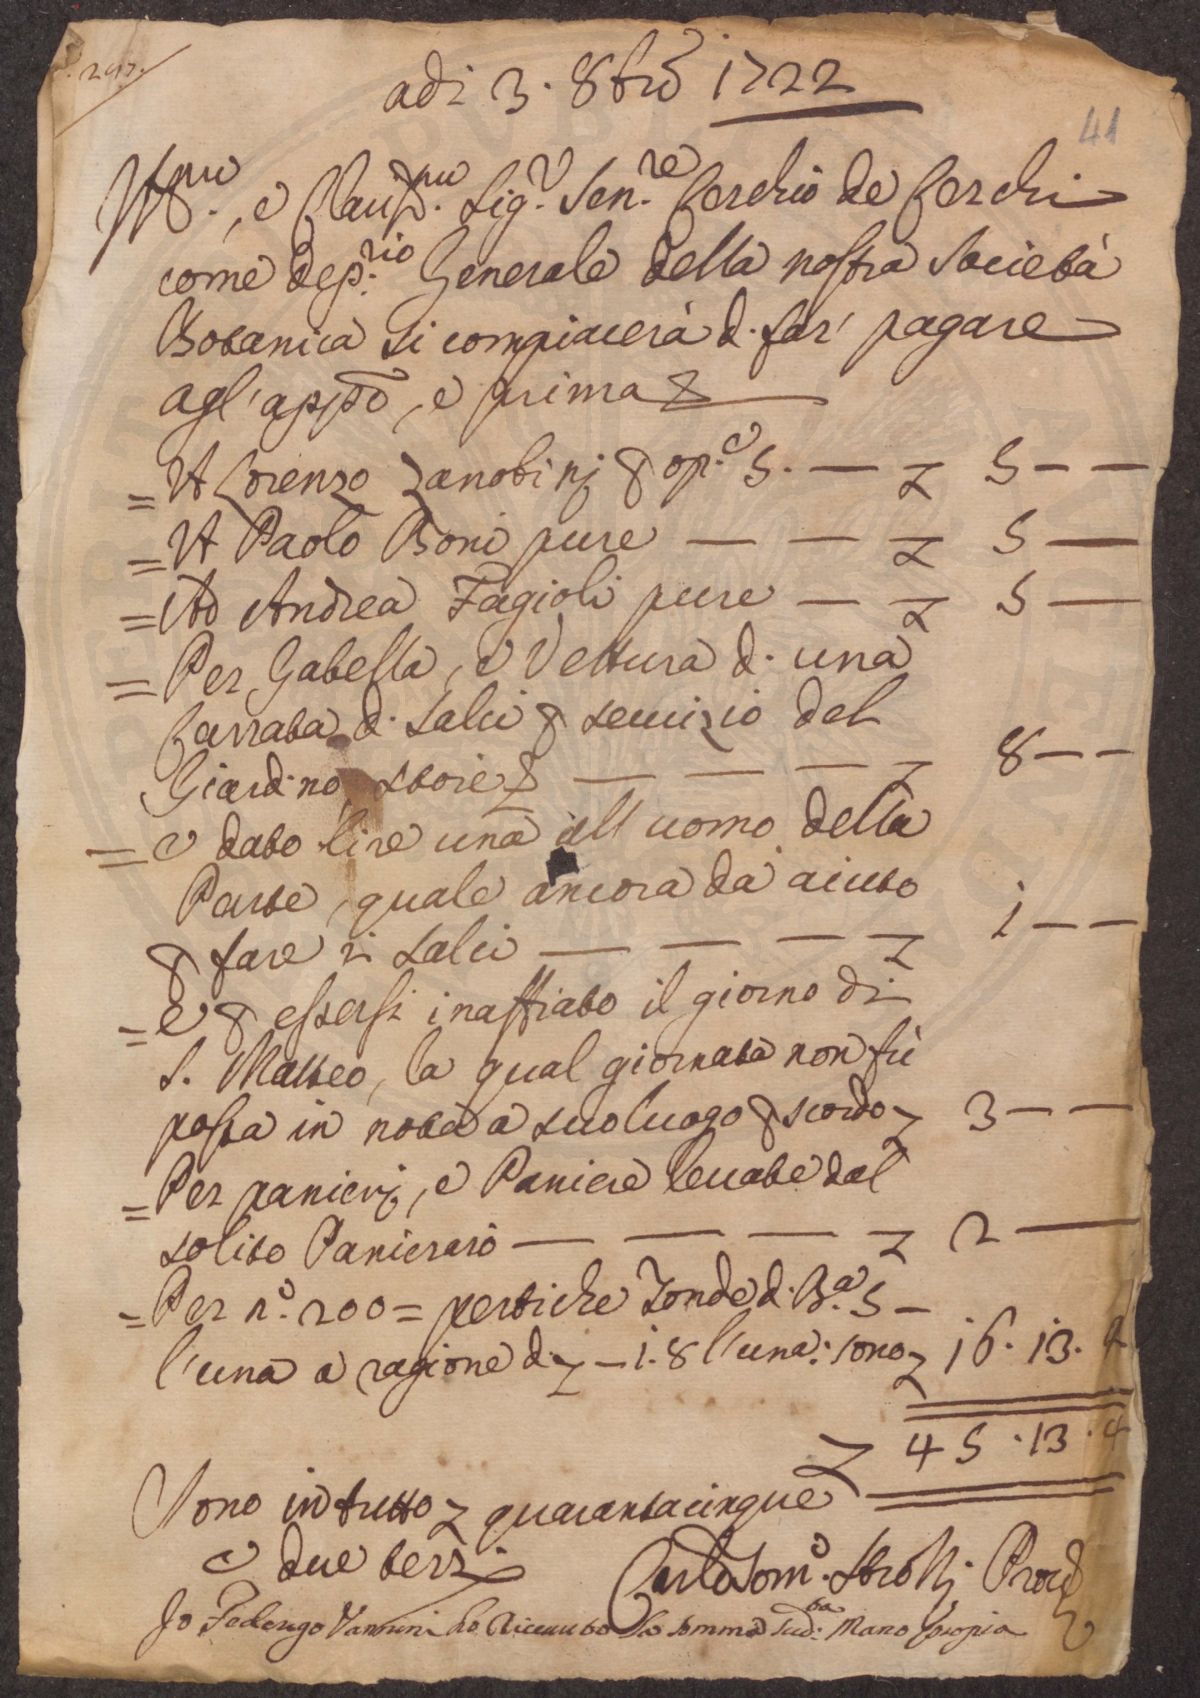 297.
adi 3. 8bre 1722
41
Ill.mo, e Clariss.mo Sig.r Sen.re Cerchio de Cerchi
come dep.rio Generale della nostra Società
Botanica si compiacerà d. far' pagare
agl'app.o, e prima
= A Lorenzo Zanobinj p op.e 5. — — 5 — —
= A Paolo Boni pure — — — 5 —
= Ad Andrea Fagioli pure — — 5 —
= Per Gabella, e Vettura d. una
Carrata d. salci p servizio del
Giardino, stoie — — — — 8 — —
= e dato lire una all uomo della
Parte, quale ancora dà aiuto
p fare i salci — — — — 1 — —
= e p essersi inaffiato il giorno di
S. Matteo, la qual giornata non fù
posta in nota a suo luogo p scordo 3 — —
= Per panierj, e Paniere levate dal
solito Panieraio — — — — 2 —
= Per n.o 200 = pertiche Tonde d. B.a 5 —
l'una a ragione d. — 1.8 l'una: sono 16. 13. 4
45. 13. 4
Sono in tutto quarantacinque
e due terzi
Carlo Tom.o Strozzi Proved
Io Federigo Vannini ho Riceuuto La somma Sud.ta Mano Propia